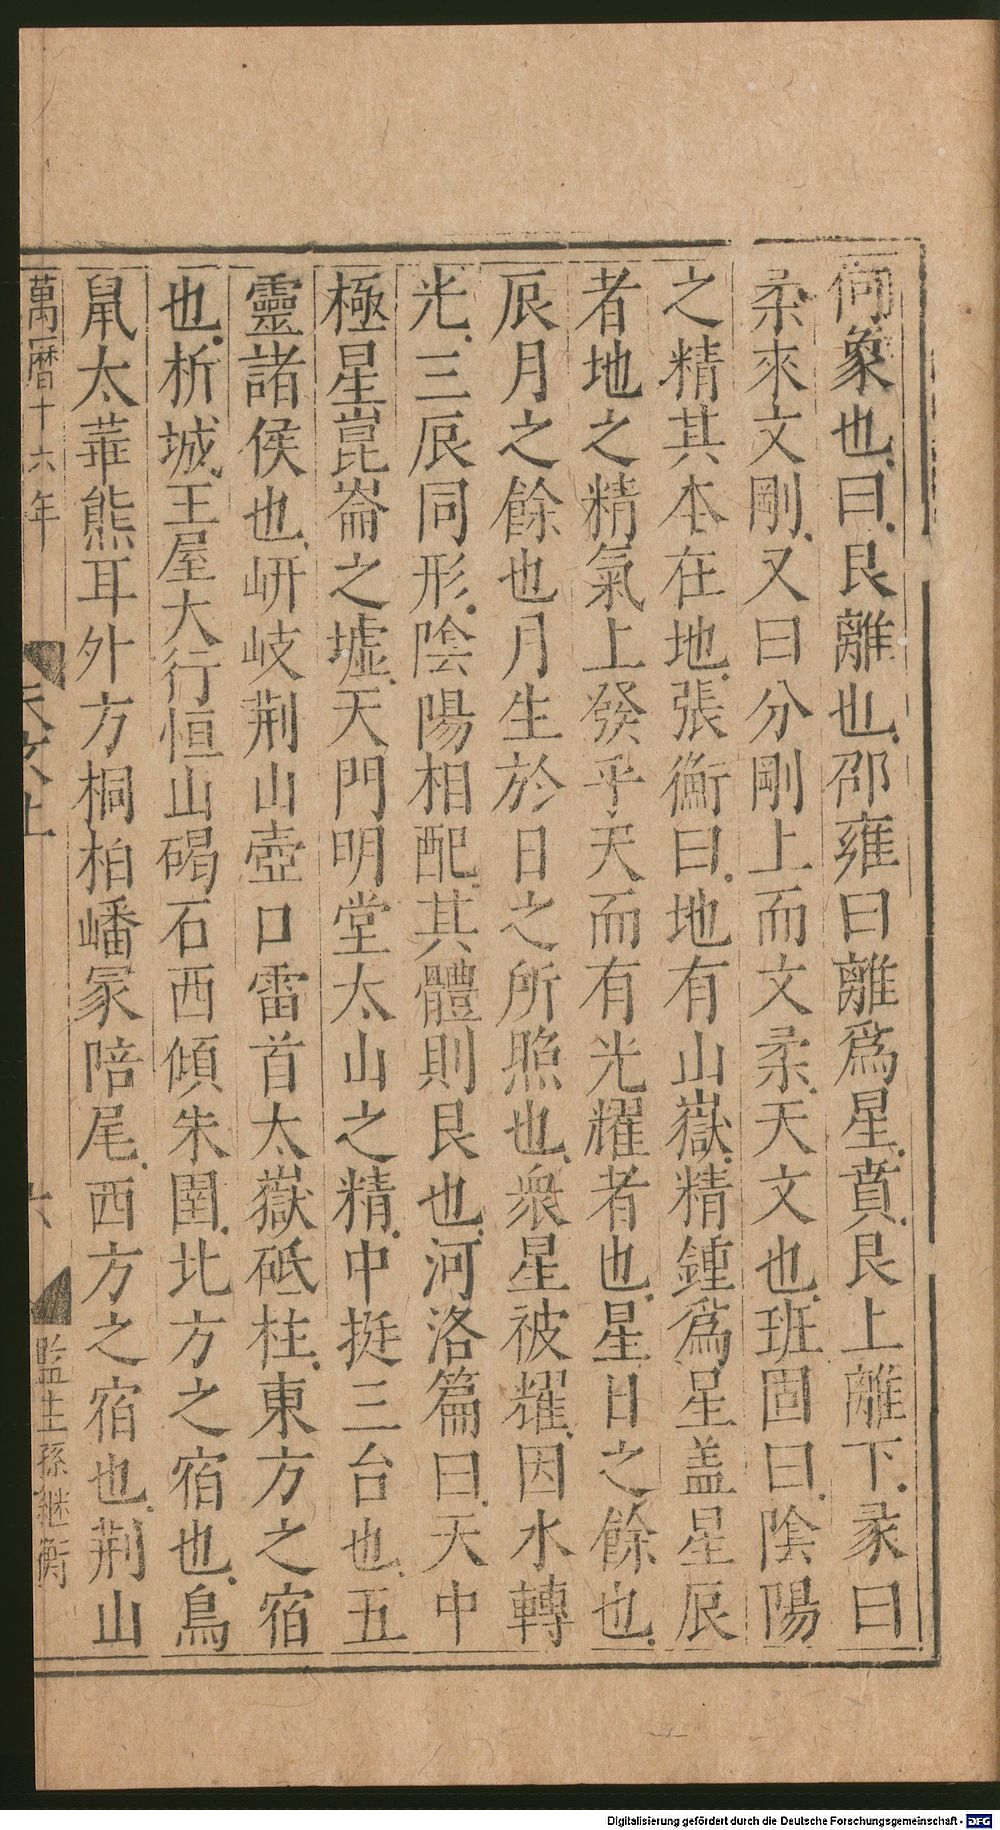 何象也曰艮離也邵雍曰離爲星賁艮上離下彖曰
柔來文剛又曰分剛上而文柔天文也班固曰陰陽
之精其本在地張衡曰地有山嶽精鍾爲星盖星辰
者地之精氣上發乎天而有光耀者也星日之餘也
辰月之餘也月生於日之所照也衆星被耀因水轉
光三辰同形陰陽相配其體則艮也河洛篇曰天中
極星崑崙之墟天門明堂太山之精中挺三台也五
靈諸侯也岍岐荆山壺口雷首太嶽砥柱東方之宿
也析城王屋大行恒山碣石西傾朱圉北方之宿也鳥
鼠太華熊耳外方桐柏嶓冢陪尾西方之宿也荆山
萬曆十六年
天文上
六
監生孫継衡
Digitalisierung gefördert durch die Deutsche Forschungsgemeinschaft - DFG